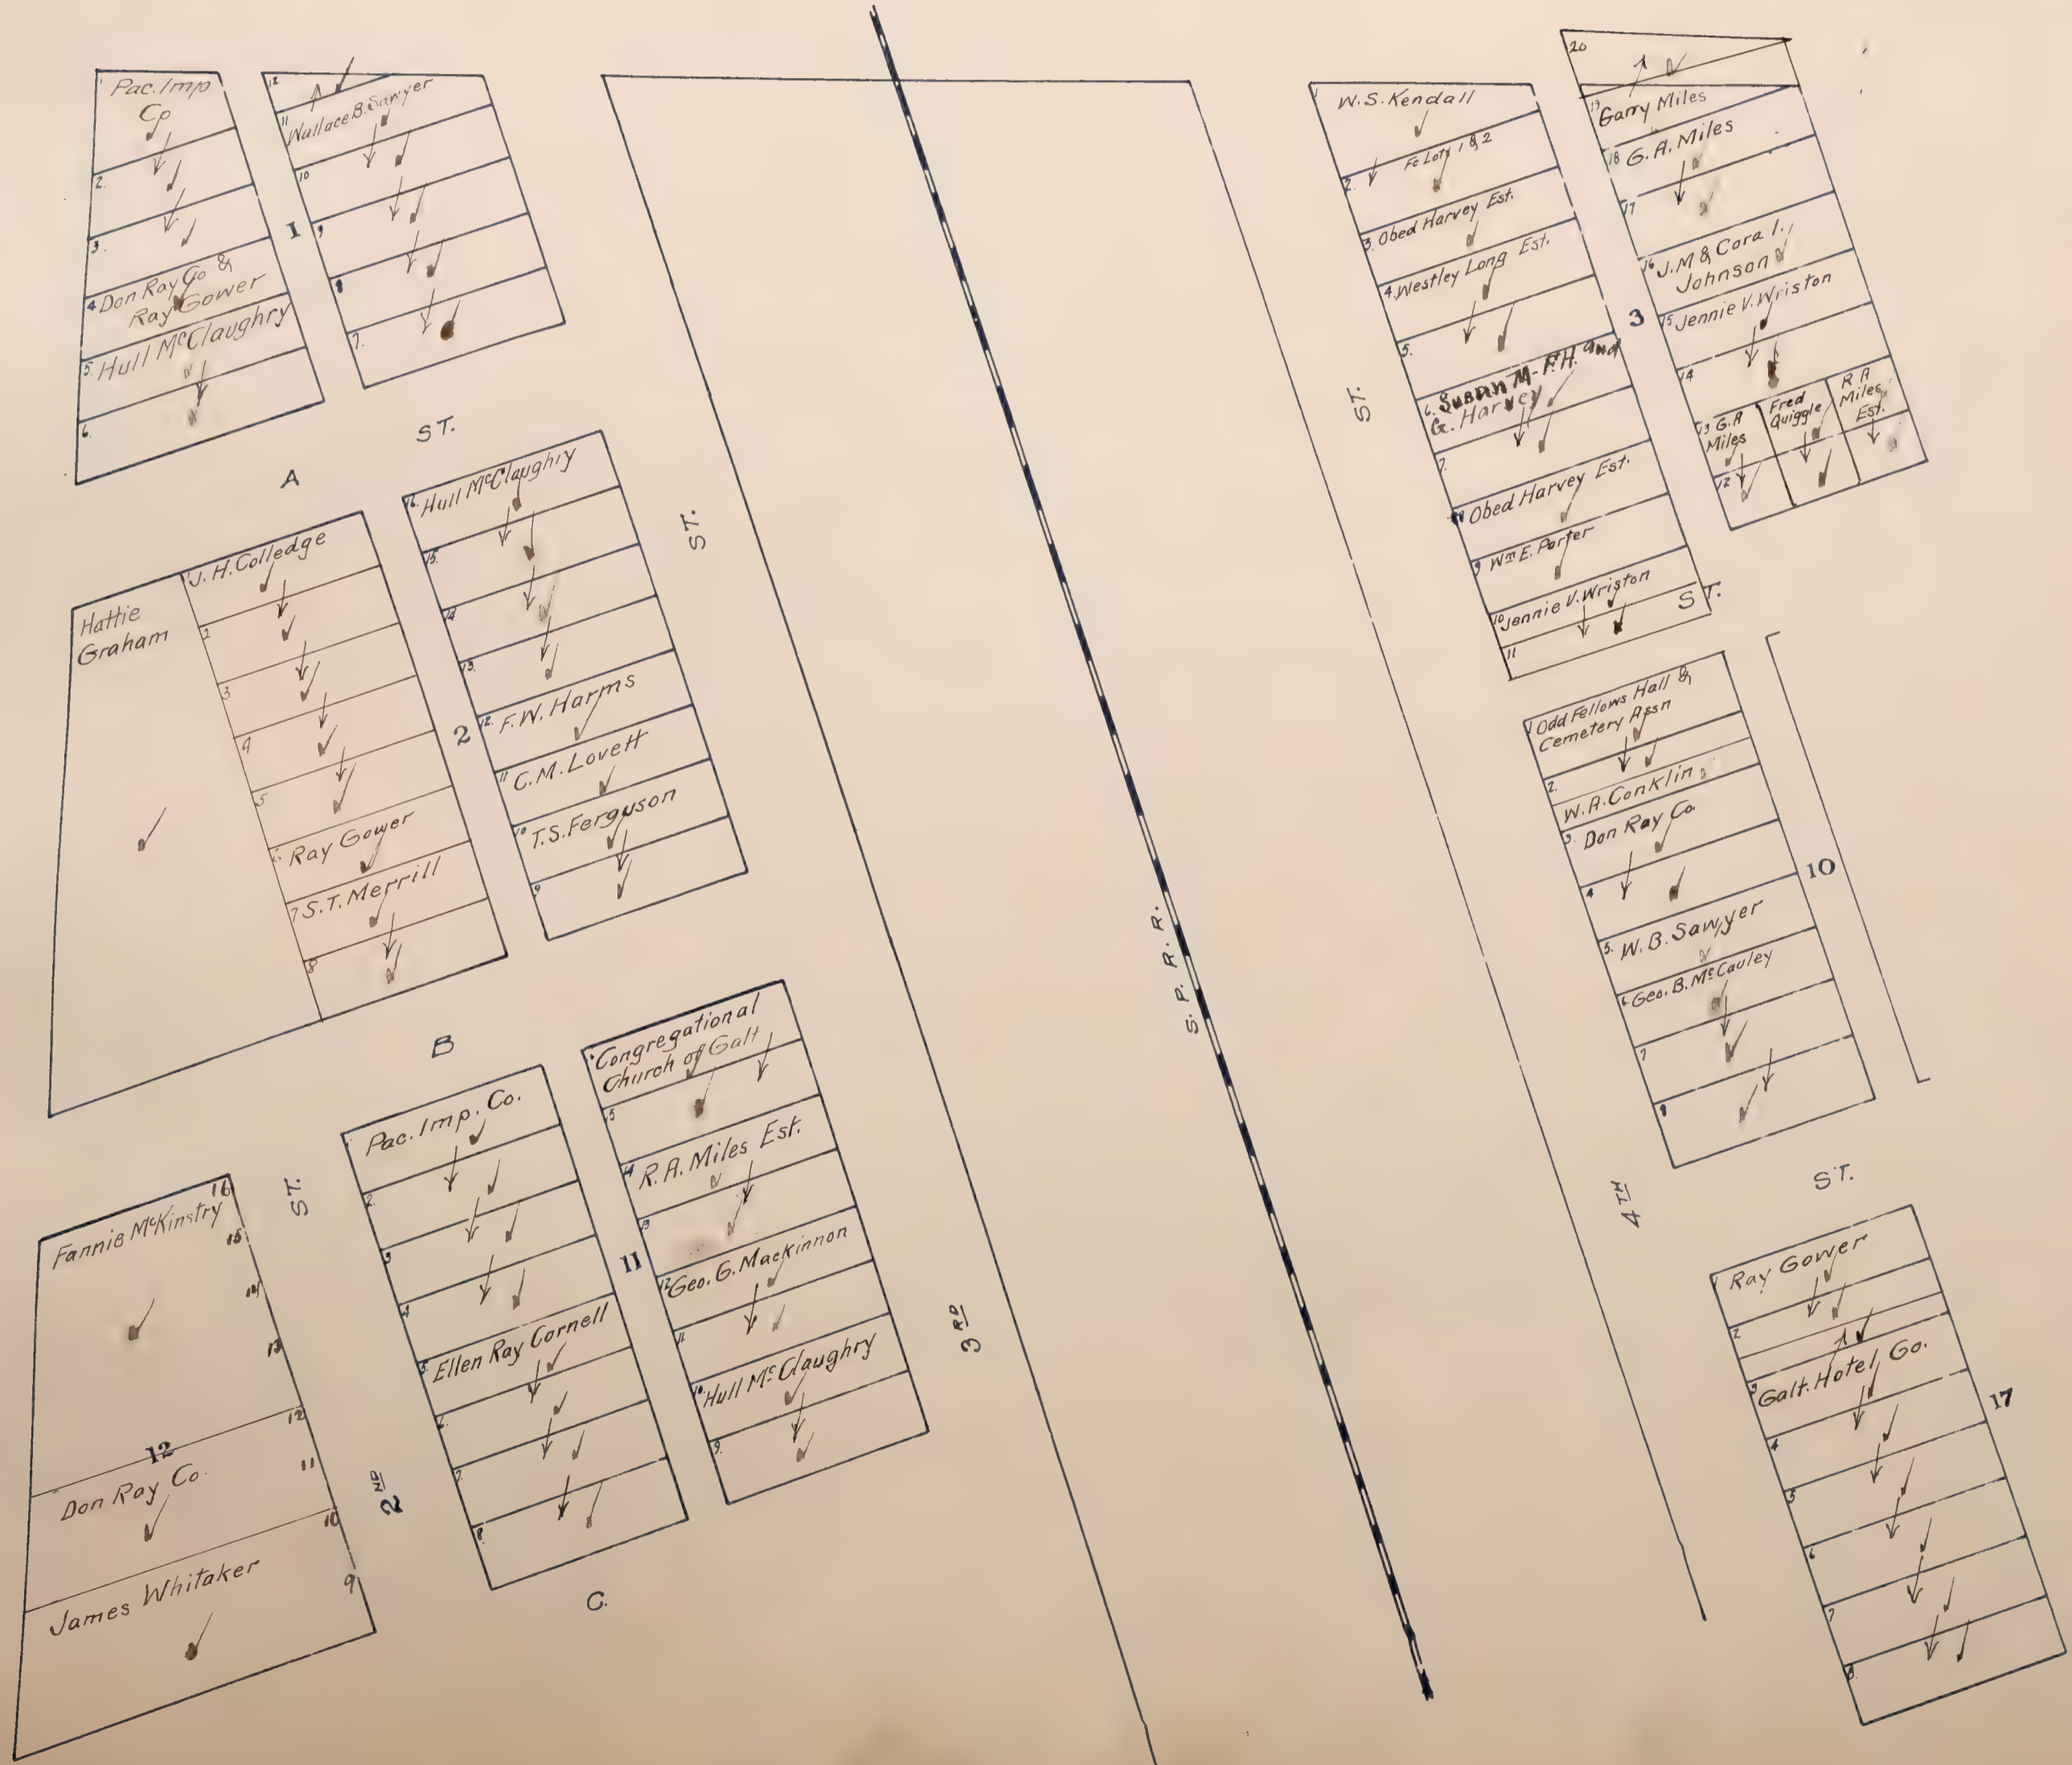 1 Pac. Imp
Co
2.
3.
4 Don Ray Co &
Ray Gower
5. Hull McClaughry
6.
1
12
11
Wallace B. Sawyer
10
9
8
7.
A ST.
Hattie
Graham
1 J. H. Colledge
2
3
4
5
6 Ray Gower
7 S.T. Merrill
8
2
16. Hull McClaughry
15.
14
13.
12. F.W. Harms
11 C.M. Lovett
10 T.S. Ferguson
9
ST.
B
Fannie McKinstry
16
15
14
13
12
12
Don Ray Co.
11
10
James Whitaker
9
ST.
2ND
Pac. Imp. Co.
2
3
4
5. Ellen Ray Cornell
6.
7.
8
11
Congregational
Church of Galt
5
14 R.A. Miles Est.
13
12 Geo. G. Mackinnon
11
10. Hull McClaughry
9.
C.
3RD
S. P. R. R.
ST.
4TH
1 W.S. Kendall
2. Fc Lots 1 & 2
3. Obed Harvey Est.
4. Westley Long Est.
5.
6. Susan M- F.H. and
G. Harvey
7.
8 Obed Harvey Est.
9 Wm E. Porter
10 Jennie V. Wriston
11
ST.
3
20
19
Garry Miles
18 G.A. Miles
17
16 J.M & Cora I.
Johnson
15 Jennie V. Wriston
14
13 G.A
Miles
Fred
Quiggle
R A
Miles
Est.
12
1 Odd Fellows Hall &
Cemetery Assn
2.
W.A. Conklin
3. Don Ray Co
4
5. W. B. Sawyer
6. Geo. B. McCauley
7
8
10
ST.
1 Ray Gower
2
3
Galt. Hotel Co.
4
5
6
7
8
17